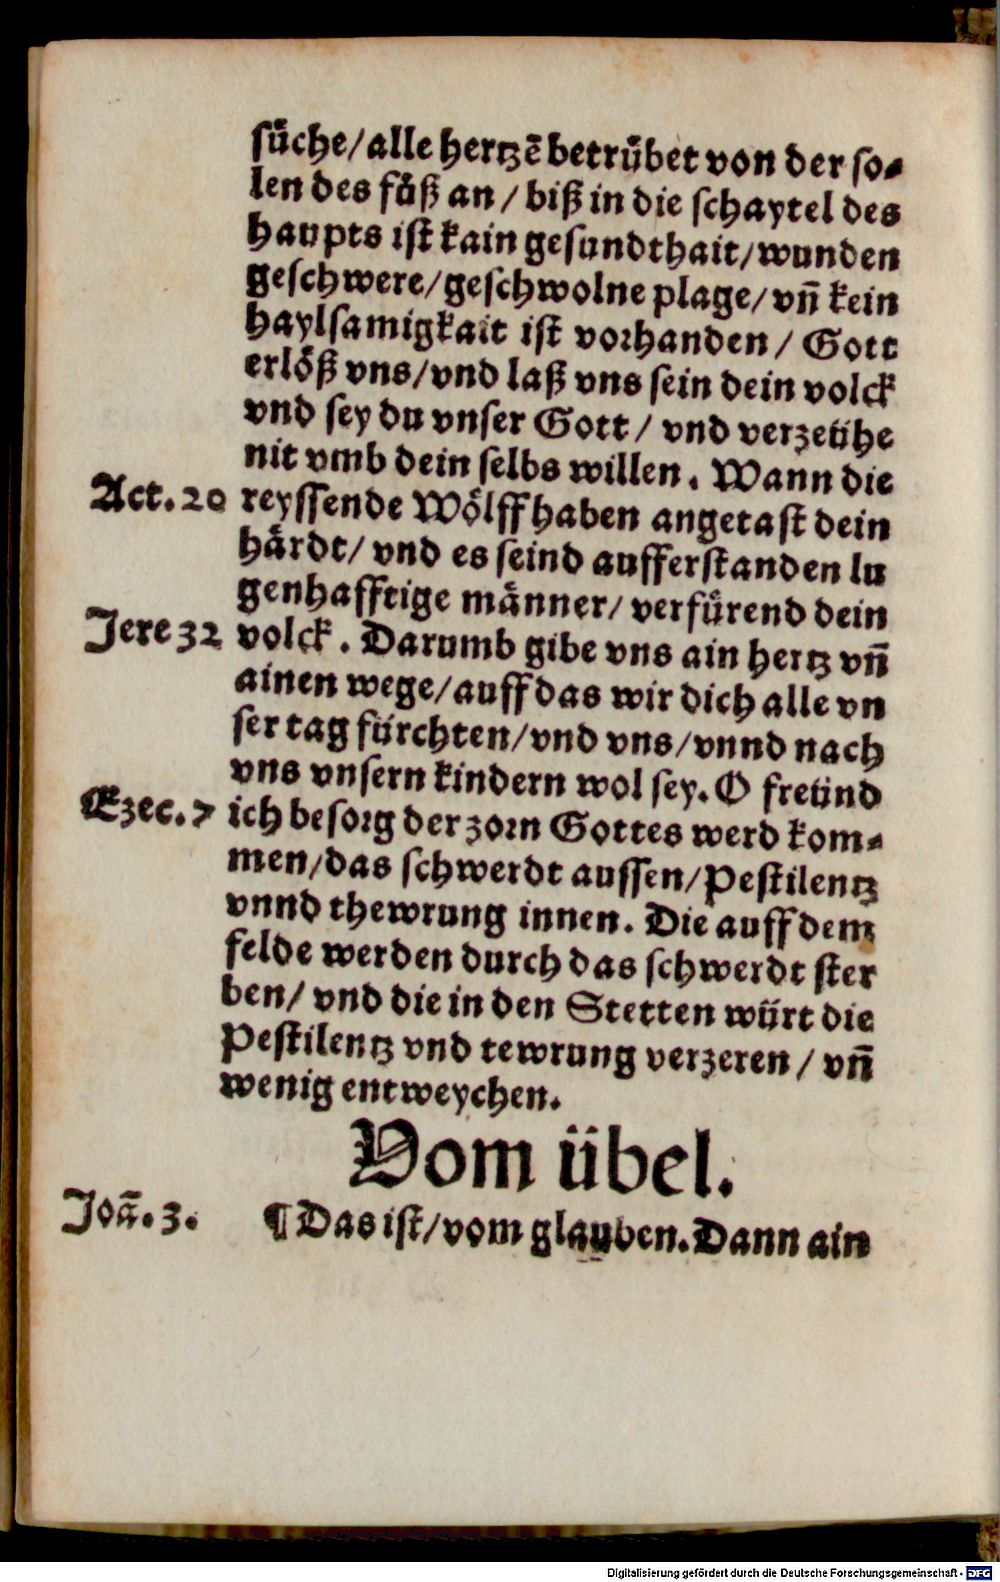 süche/alle hertzē betrübet von der so⸗
len des fůß an / biß in die schaytel des
haupts ist kain gesundthait/wunden
geschwere/geschwolne plage/vñ kein
haylsamigkait ist vorhanden / Gott
erlöß vns/vnd laß vns sein dein volck
vnd sey du vnser Gott / vnd verzeühe
nit vmb dein selbs willen. Wann die
Act. 20 reyssende Wölff haben angetast dein
härdt/ vnd es seind aufferstanden lu
genhafftige männer/ verfürend dein
Jere 32 volck . Darumb gibe vns ain hertz vñ
ainen wege/auff das wir dich alle vn
ser tag fürchten/vnd vns/vnnd nach
vns vnsern kindern wol sey. O freünd
Ezec. 7 ich besorg der zorn Gottes werd kom⸗
men/das schwerdt aussen/Pestilentz
vnnd thewrung innen. Die auff dem
felde werden durch das schwerdt ster
ben/ vnd die in den Stetten würt die
Pestilentz vnd tewrung verzeren / vñ
wenig entweychen.
Vom übel.
Joā. 3. ¶ Das ist/vom glauben. Dann ain
Digitalisierung gefördert durch die Deutsche Forschungsgemeinschaft - DFG